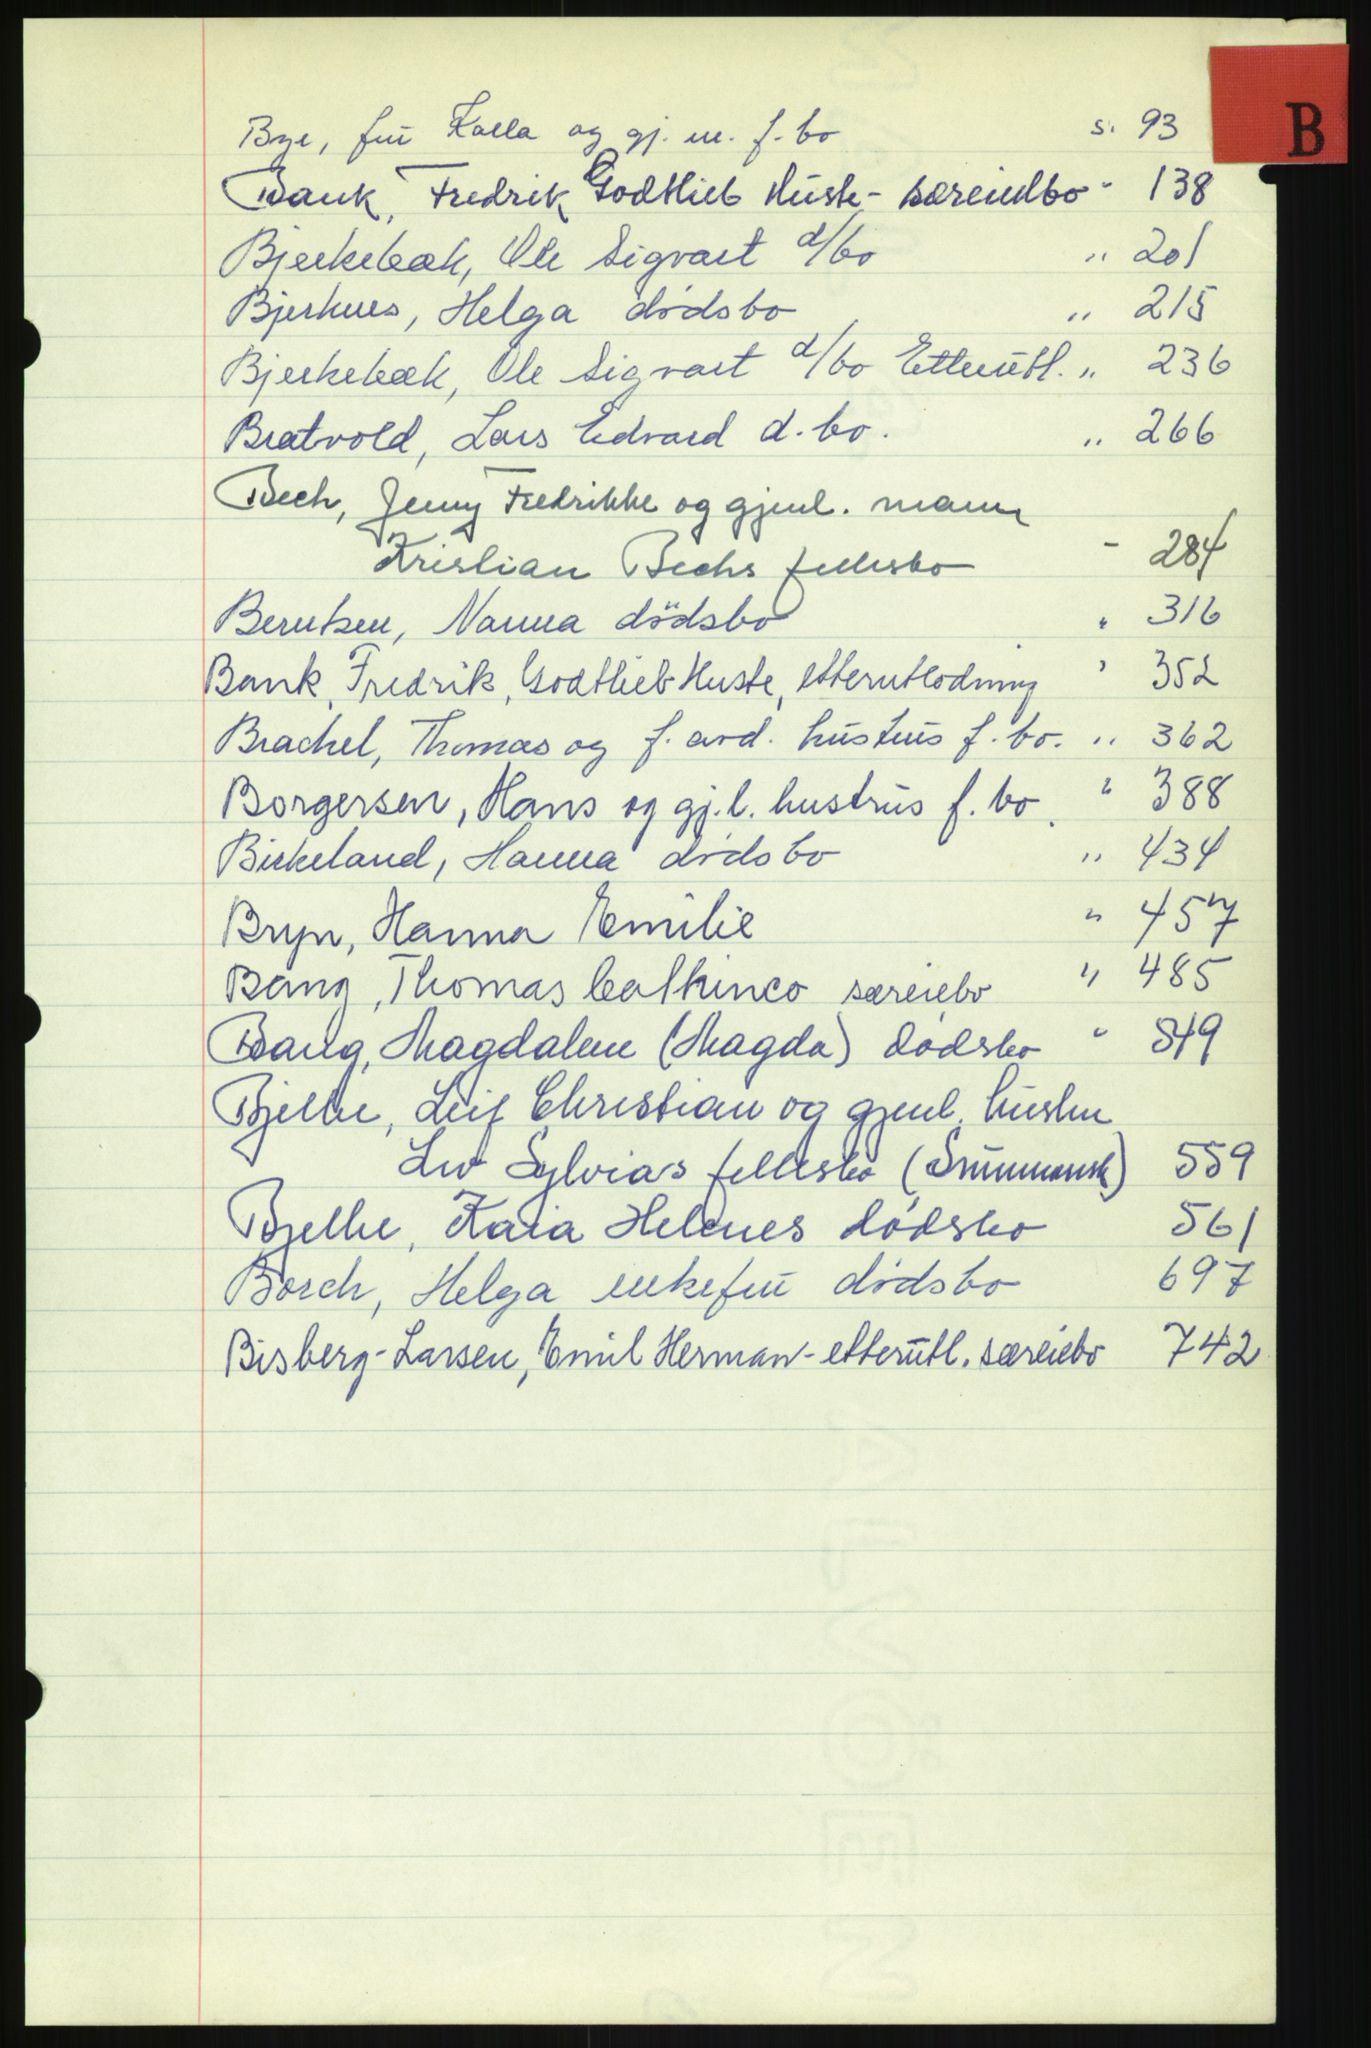 B
Bye, fru Kalla og gj. m. f. bo s. 93
Bank, Fredrik Godtlieb Huste - særeiebo - 138
Bjerkebæk, Ole Sigvart d/bo " 201
Bjerknes, Helga dødsbo " 215
Bjerkebæk, Ole Sigvart d/bo Etterutl. " 236
Bratvold, Lars Edvard d. bo. " 266
Bech, Jenny Fredrikke og gjenl. mann
Kristian Bechs fellesbo - 284
Berntsen, Nanna dödsbo " 316
Bank, Fredrik, Godtlieb Huste, etterutlodning " 352
Brachel, Thomas og f. avd. hustrus f. bo. " 362
Borgersen, Hans og gj.l. hustrus f. bo. " 388
Birkeland, Hanna dødsbo " 434
Bryn, Hanna Emilie " 457
Bang, Thomas Cathinco særeiebo " 485
Bang, Magdalene (Magda) dødsbo " 549
Bjelke, Leif Christian og gjenl. hustru
Liv Sylvias fellesbo ( ) 559
Bjelke, Kaia Helenes dødsbo 561
Borch, Helga enkefru dødsbo 697
Bisberg-Larsen, Emil Herman - etterutl. særeiebo 742